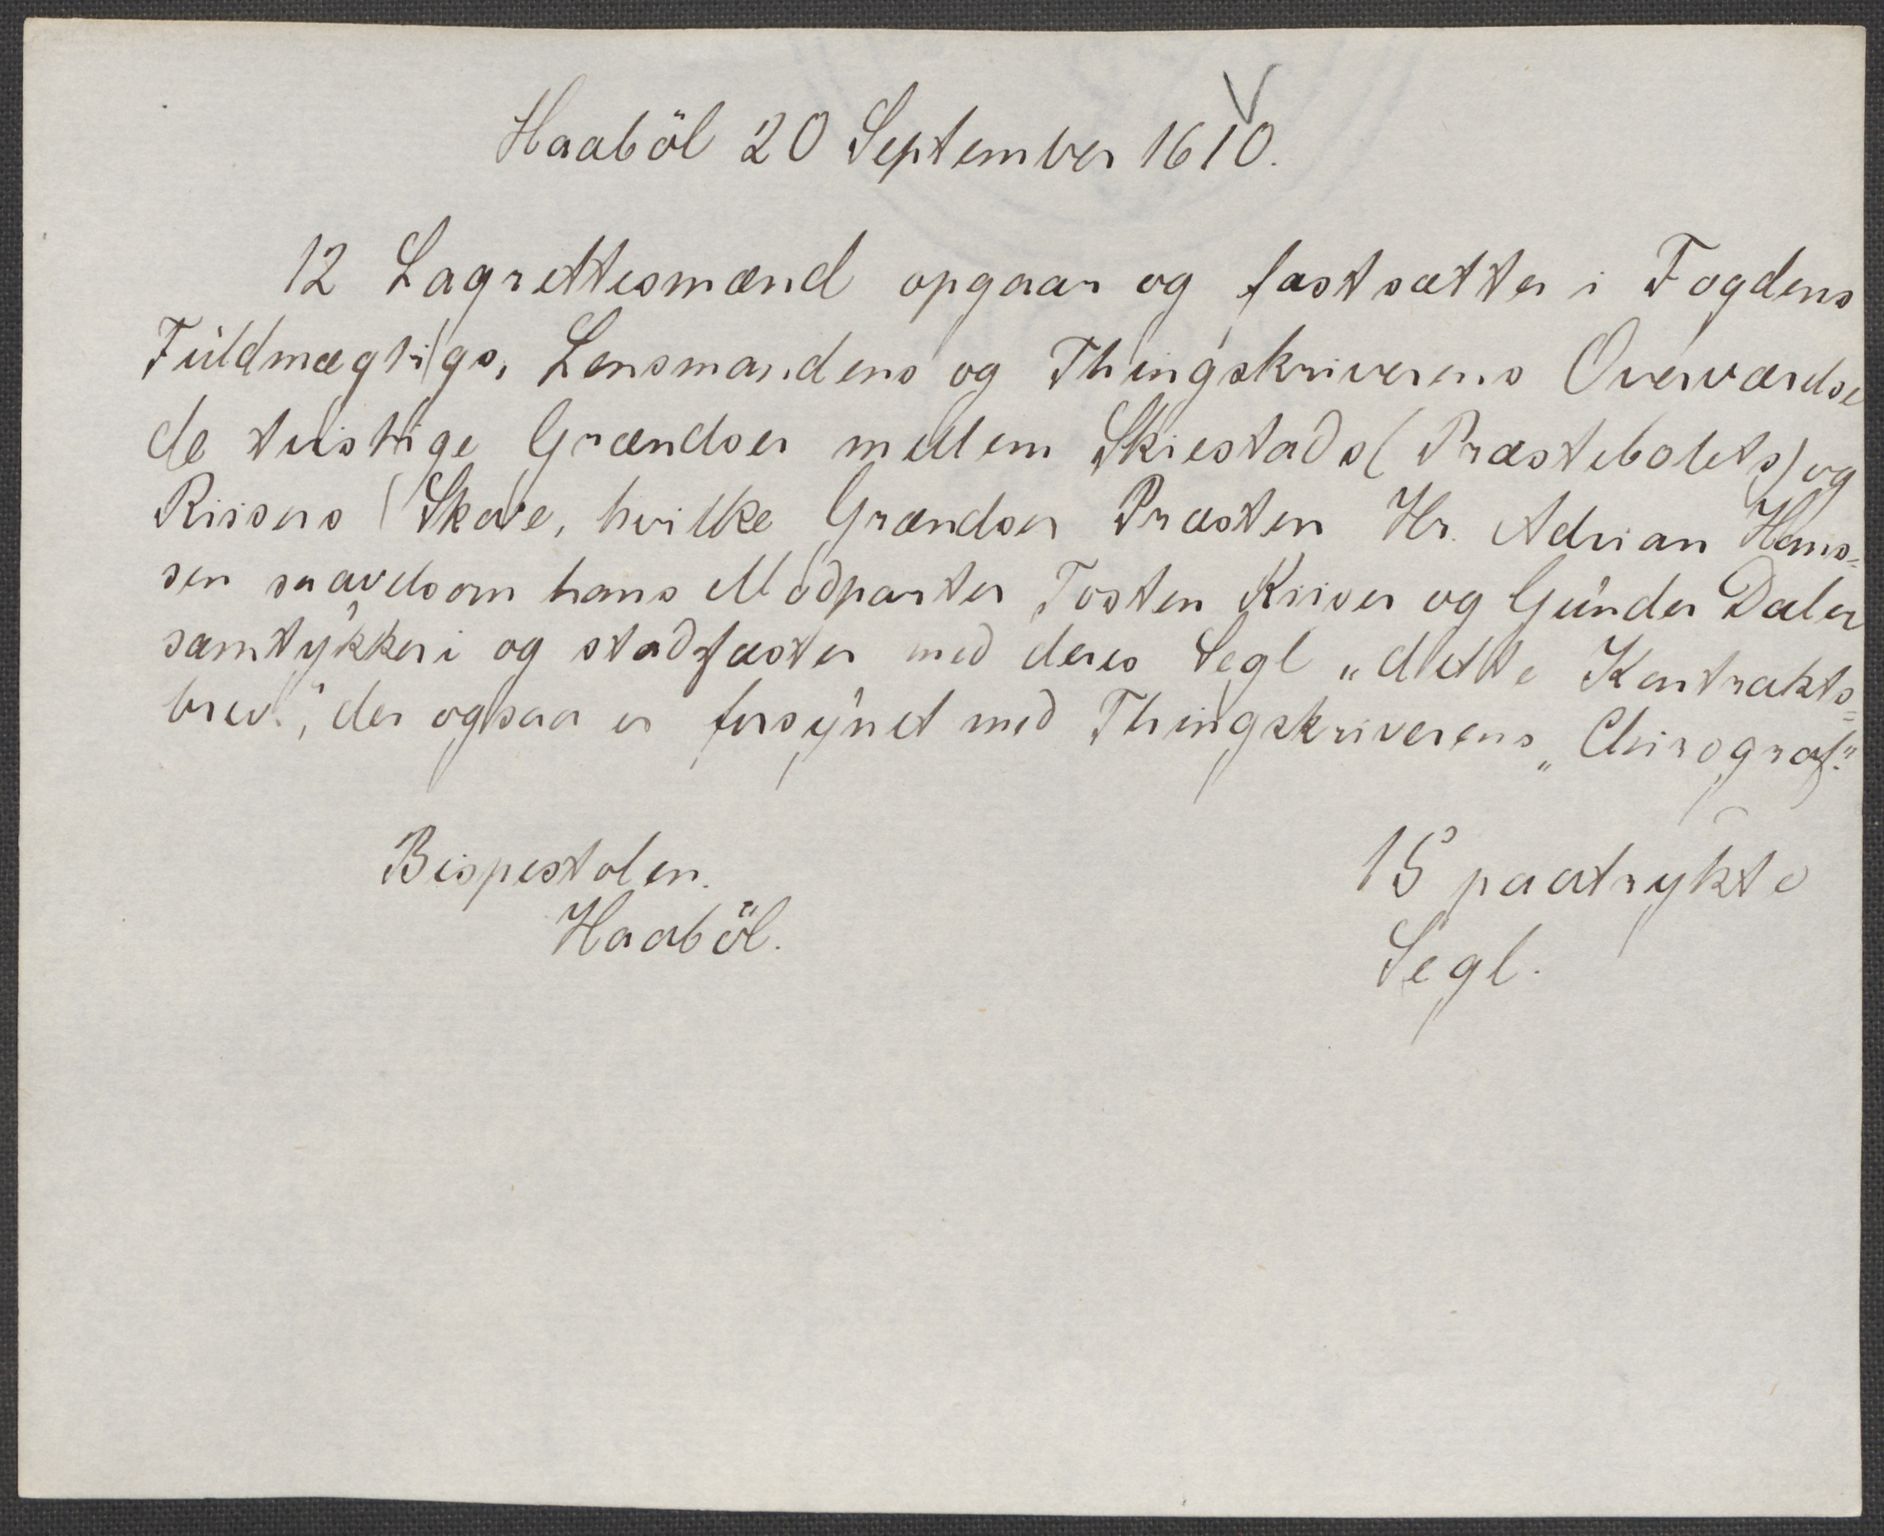 Haaböl 20 September 1610.
12 Lagrettesmænd opgaar og fastsætter i Fogdens
Fuldmægtigs, Lensmandens og Thingskriverens Overværdse
de tvistige Grændser mellem Skiestads (Præstebolets) og
Riisers Skove, hvilke Grændser Præsten Hr. Adrian Hans-
sen saavelsom hans Modparter Tosten Riiser og Gunder Dæler
samtykker i og stadfæster med deres Segl „dette Kontrakts=
brev", der ogsaa er forsynet med Thingskriverens „Chirograf."
Bispestolen.
Haaböl.
15 paatrykte
Segl.